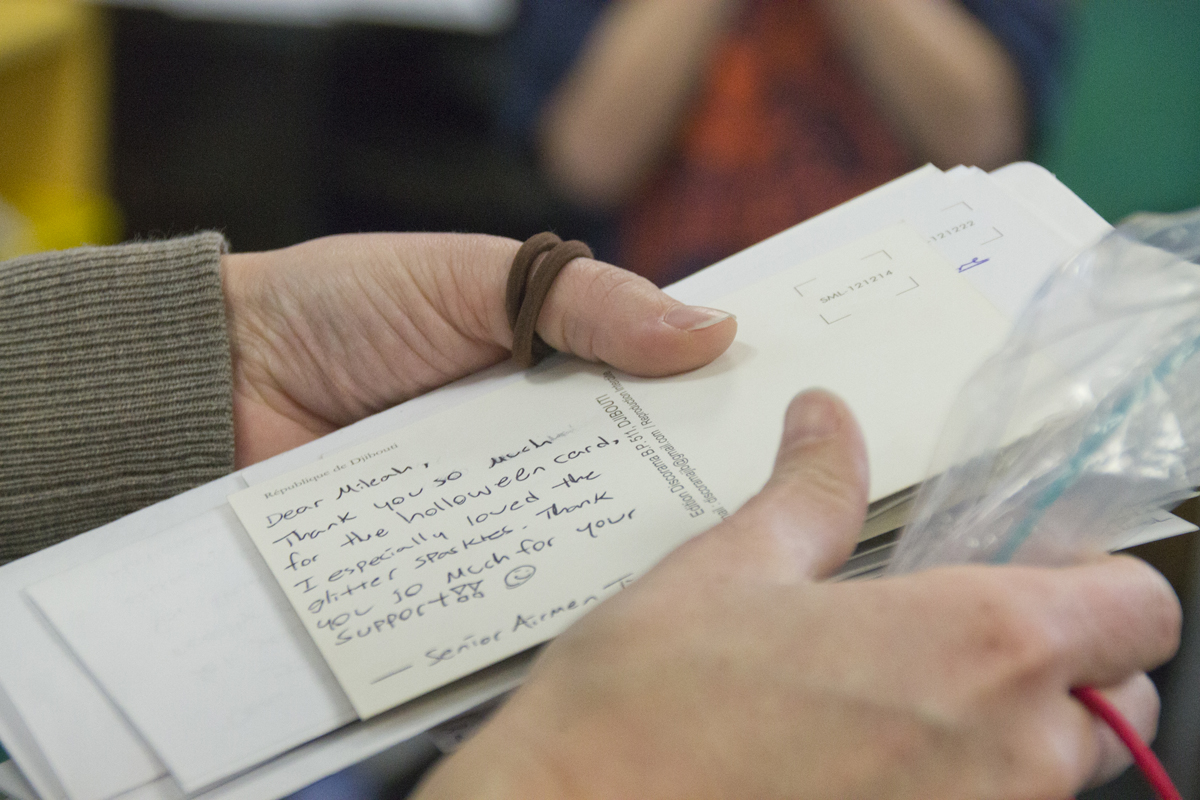 République de Djibouti
Dear Mileah,
Thank you so much
for the holloween card,
I especially loved the
glitter sparkles. Thank
you so much for your
support!! ☺
— Senior Airmen
Edition Discorama B.P. 511, DJIBOUTI
discoramadj@gmail.com / Reproduction
SML-121214
121222